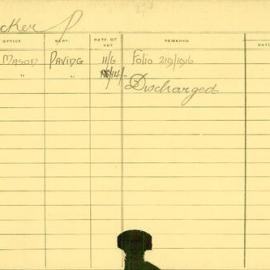 cker P
OFFICE DEPT. RATE OF PAY REMARKS DATE
MASON PAVING 11/6 Folio 219/1916
" " 14/- Discharged